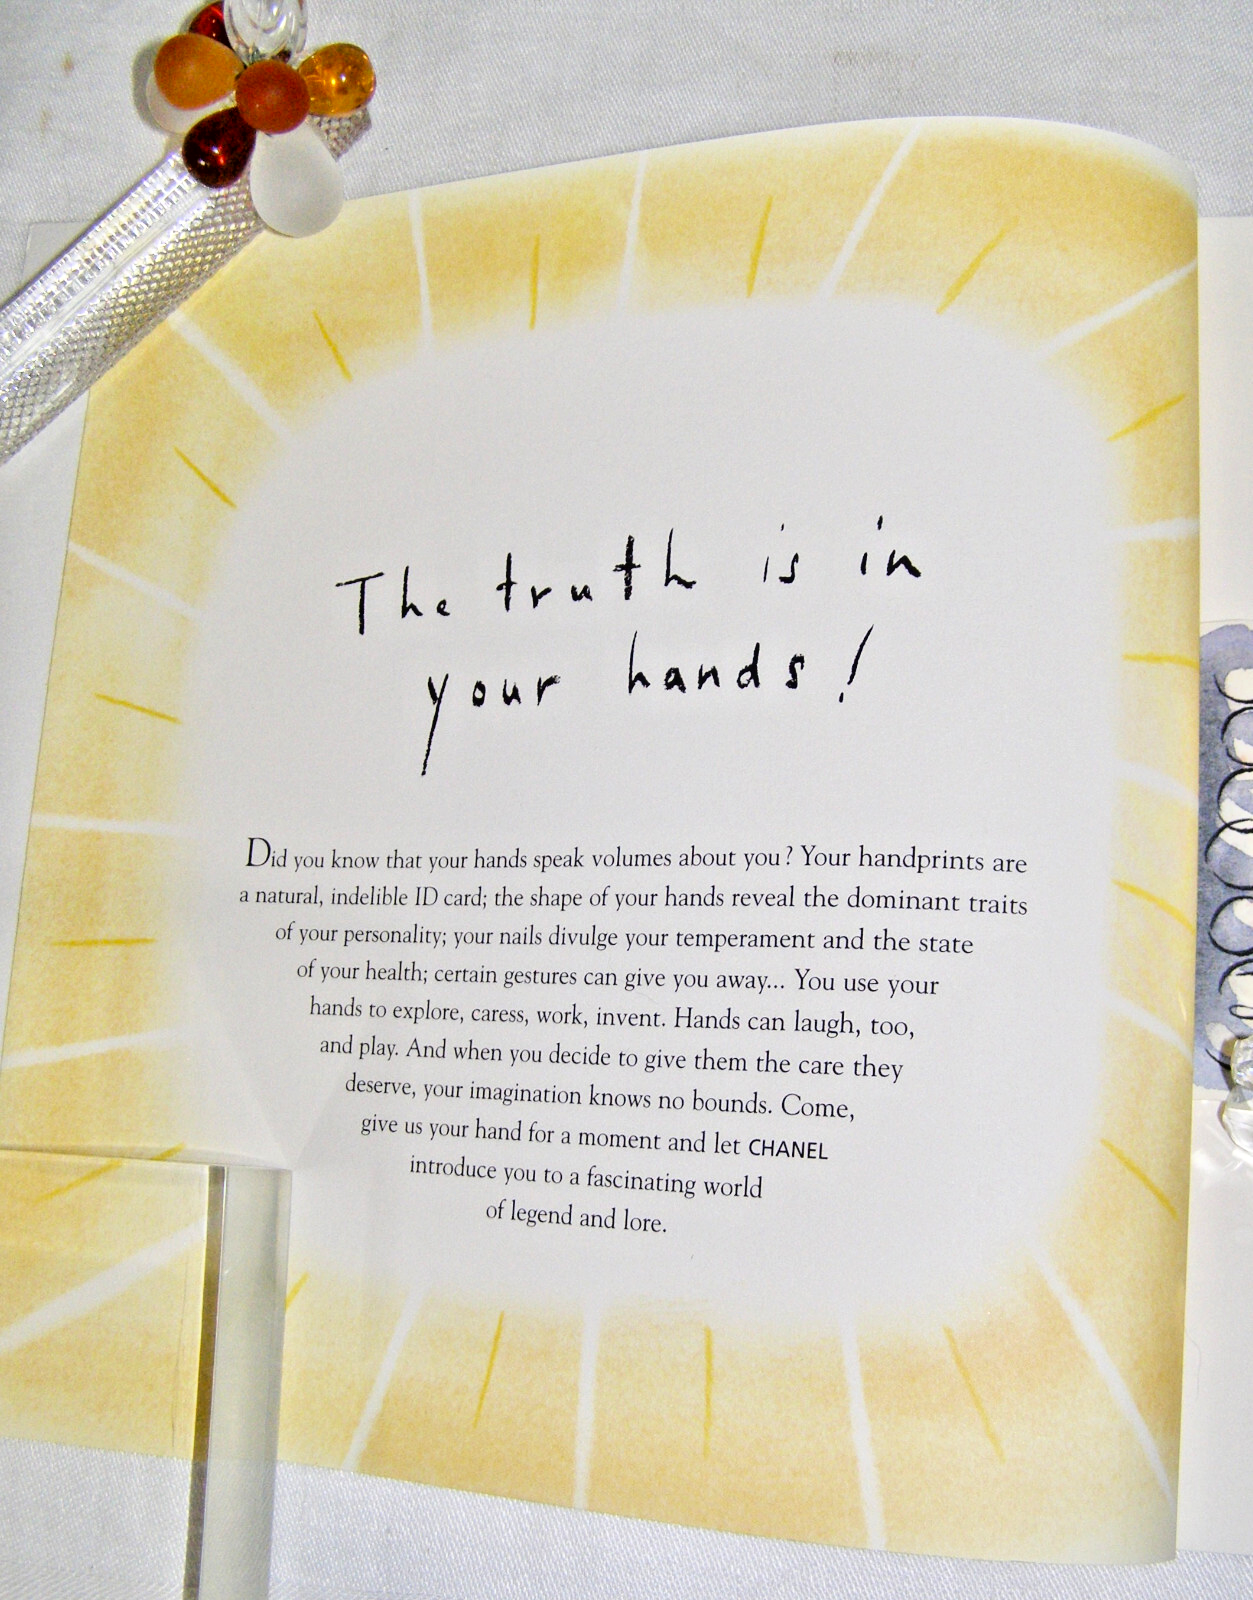 The truth is in
your hands!
Did you know that your hands speak volumes about you? Your handprints are
a natural, indelible ID card; the shape of your hands reveal the dominant traits
of your personality; your nails divulge your temperament and the state
of your health; certain gestures can give you away... You use your
hands to explore, caress, work, invent. Hands can laugh, too,
and play. And when you decide to give them the care they
deserve, your imagination knows no bounds. Come,
give us your hand for a moment and let CHANEL
introduce you to a fascinating world
of legend and lore.